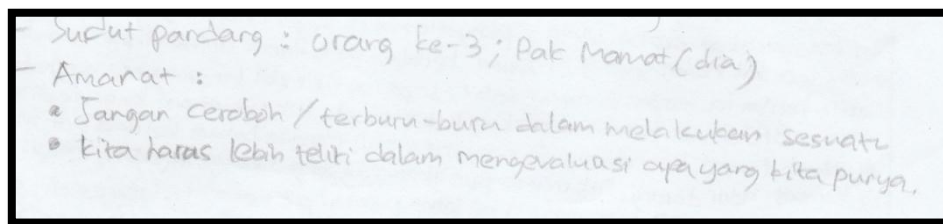 - Sudut pandang : orang ke-3 ; Pak Mamat (dia)
- Amanat :
• Jangan ceroboh / terburu-buru dalam melakukan sesuatu
• kita harus lebih teliti dalam mengevaluasi apa yang kita punya.